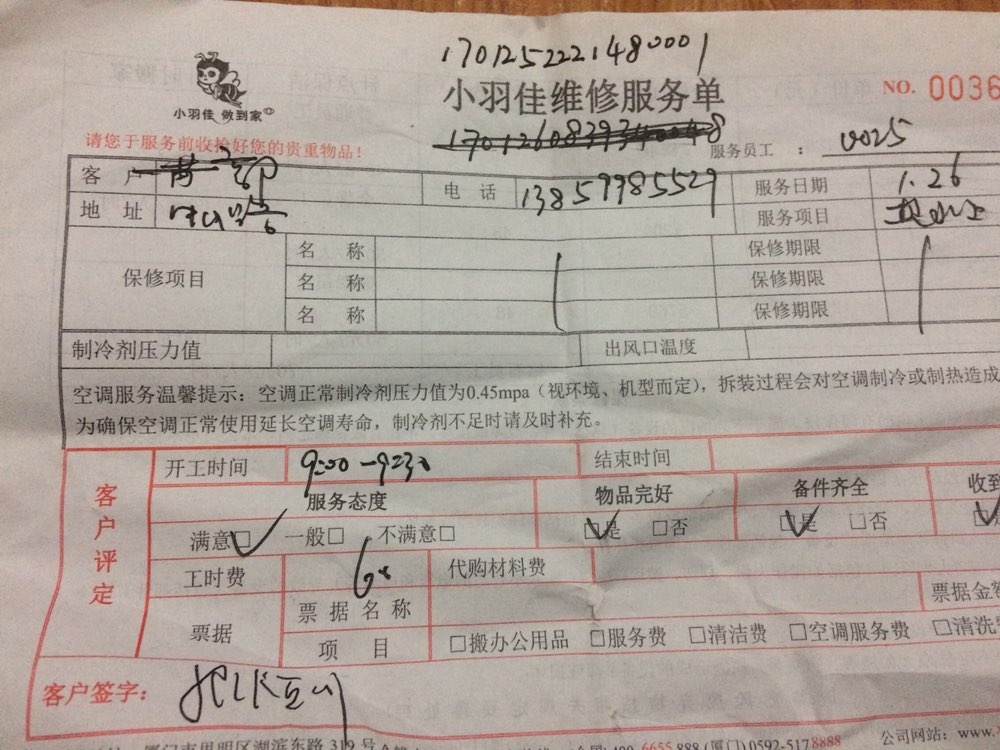 1701252221480001
小羽佳 做到家
小羽佳维修服务单
NO. 0036
请您于服务前收拾好您的贵重物品!
服务员工 : 0025
客 户 电 话 13859985529 服务日期 1.26
地 址 服务项目
保修项目 名 称 保修期限
名 称 保修期限
名 称 保修期限
制冷剂压力值 出风口温度
空调服务温馨提示:空调正常制冷剂压力值为0.45mpa(视环境、机型而定),拆装过程会对空调制冷或制热造成
为确保空调正常使用延长空调寿命,制冷剂不足时请及时补充。
客户评定
开工时间 9:00-9:30 结束时间
服务态度 物品完好 备件齐全 收到
满意□ 一般□ 不满意□ □是 □否 □是 □否
工时费 代购材料费
票据 票据名称 票据金额
项 目 □搬办公用品 □服务费 □清洁费 □空调服务费 □清洗费
客户签字:
厦门市思明区湖滨东路 319 号 6655 888 (厦门) 0592-5178888 公司网站:www.